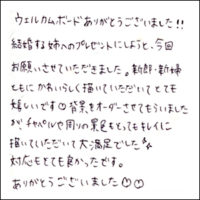 ウェルカムボードありがとうございました!!
結婚する姉へのプレゼントにしようと、今回
お願いさせていただきました。新郎・新婦
ともにかわいらしく描いていただいてとても
嬉しいです☺背景をオーダーさせてもらいました
が、チャペルや周りの景色もとってもキレイに
描いていただいて大満足でした♪♪
対応もとても良かったです。
ありがとうございました☺☺